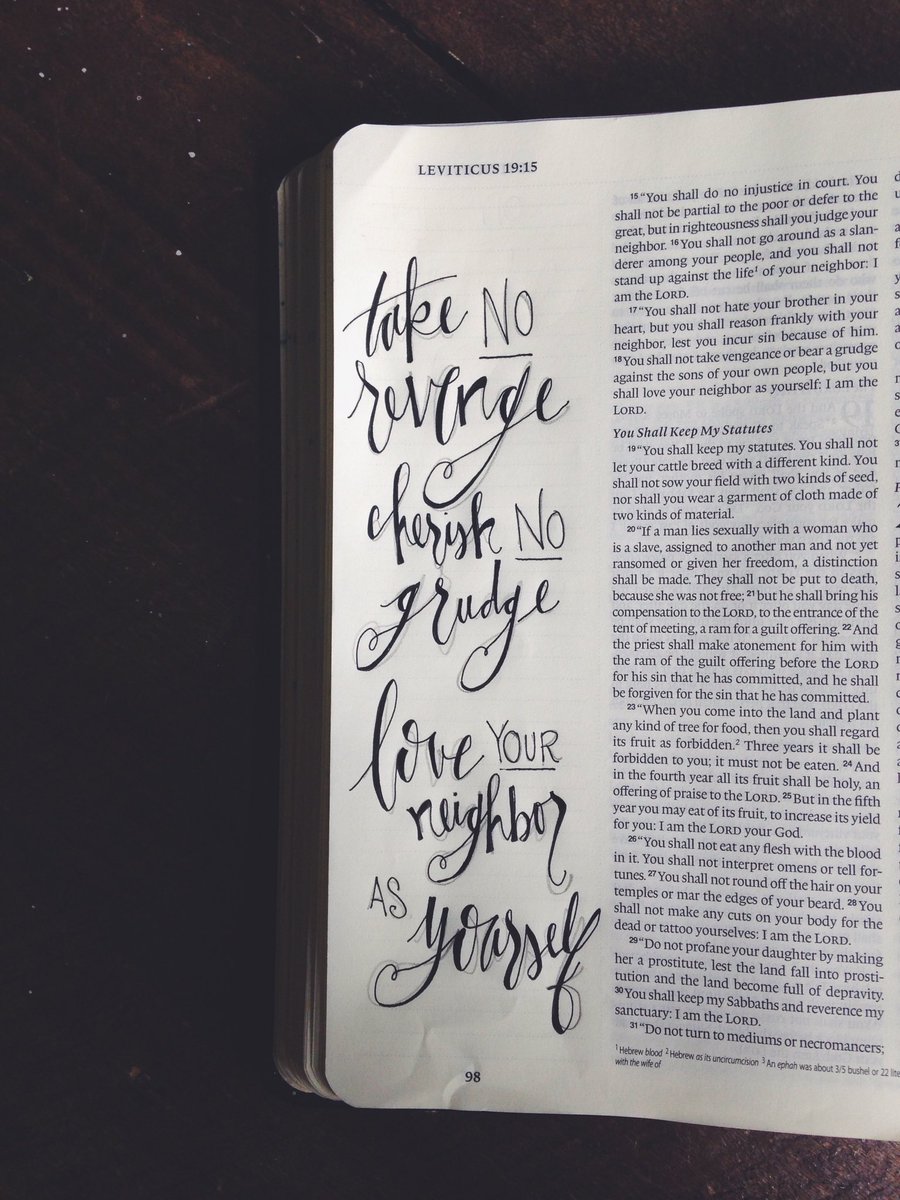 LEVITICUS 19:15
take NO
revenge
cherish NO
grudge
love YOUR
neighbor
AS
yourself
98
15 “You shall do no injustice in court. You
shall not be partial to the poor or defer to the
great, but in righteousness shall you judge your
neighbor. 16 You shall not go around as a slan-
derer among your people, and you shall not
stand up against the life1 of your neighbor: I
am the LORD.
17 “You shall not hate your brother in your
heart, but you shall reason frankly with your
neighbor, lest you incur sin because of him.
18 You shall not take vengeance or bear a grudge
against the sons of your own people, but you
shall love your neighbor as yourself: I am the
LORD.
You Shall Keep My Statutes
19 “You shall keep my statutes. You shall not
let your cattle breed with a different kind. You
shall not sow your field with two kinds of seed,
nor shall you wear a garment of cloth made of
two kinds of material.
20 “If a man lies sexually with a woman who
is a slave, assigned to another man and not yet
ransomed or given her freedom, a distinction
shall be made. They shall not be put to death,
because she was not free; 21 but he shall bring his
compensation to the LORD, to the entrance of the
tent of meeting, a ram for a guilt offering. 22 And
the priest shall make atonement for him with
the ram of the guilt offering before the LORD
for his sin that he has committed, and he shall
be forgiven for the sin that he has committed.
23 “When you come into the land and plant
any kind of tree for food, then you shall regard
its fruit as forbidden.2 Three years it shall be
forbidden to you; it must not be eaten. 24 And
in the fourth year all its fruit shall be holy, an
offering of praise to the LORD. 25 But in the fifth
year you may eat of its fruit, to increase its yield
for you: I am the LORD your God.
26 “You shall not eat any flesh with the blood
in it. You shall not interpret omens or tell for-
tunes. 27 You shall not round off the hair on your
temples or mar the edges of your beard. 28 You
shall not make any cuts on your body for the
dead or tattoo yourselves: I am the LORD.
29 “Do not profane your daughter by making
her a prostitute, lest the land fall into prosti-
tution and the land become full of depravity.
30 You shall keep my Sabbaths and reverence my
sanctuary: I am the LORD.
31 “Do not turn to mediums or necromancers;
1 Hebrew blood 2 Hebrew as its uncircumcision 3 An ephah was about 3/5 bushel or 22 lite
with the wife of